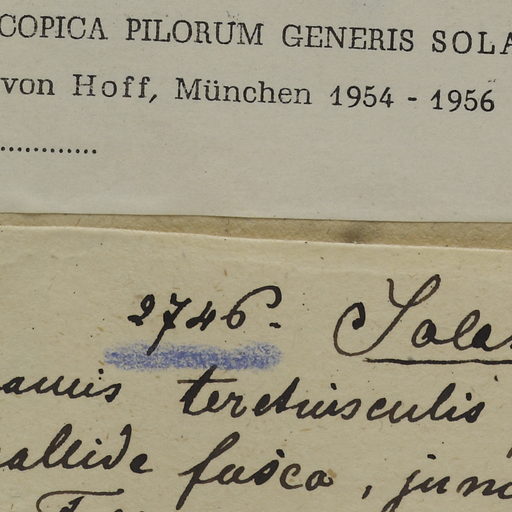 COPICA PILORUM GENERIS SOLA
von Hoff, München 1954 - 1956
.............
2746. Sola
amis teretiusculis
allide fusca, junc